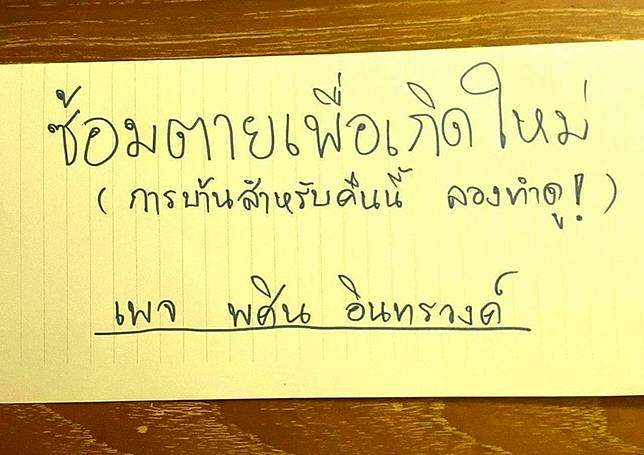 ซ้อมตายเพื่อเกิดใหม่
( การบ้านสำหรับคืนนี้ ลองทำดู! )
เพจ พศิน อินทรวงค์